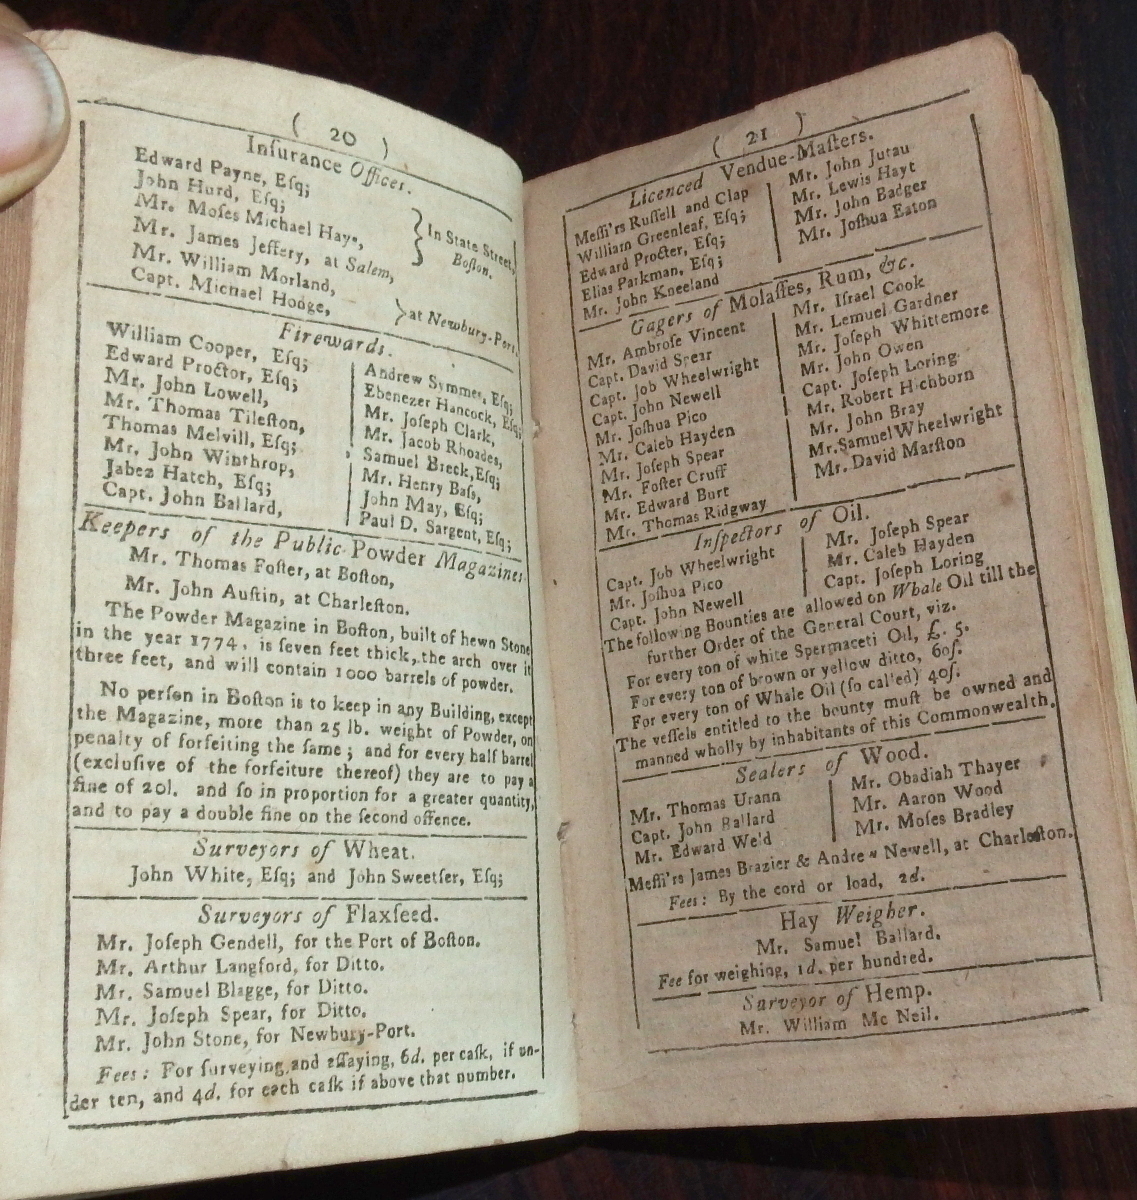 ( 20 )
Inſurance Offices.
Edward Payne, Eſq;
John Hurd, Eſq;
Mr. Moſes Michael Hays,
Mr. James Jeffery, at Salem,
Mr. William Morland,
Capt. Michael Hodge,
In State Street,
Boſton.
at Newbury-Port.
Firewards.
William Cooper, Eſq;
Edward Proctor, Eſq;
Mr. John Lowell,
Mr. Thomas Tileſton,
Thomas Melvill, Eſq;
Mr. John Winthrop,
Jabez Hatch, Eſq;
Capt. John Ballard,
Andrew Symmes, Eſq;
Ebenezer Hancock, Eſq;
Mr. Joſeph Clark,
Mr. Jacob Rhoades,
Samuel Breck, Eſq;
Mr. Henry Baſs,
John May, Eſq;
Paul D. Sargent, Eſq;
Keepers of the Public Powder Magazines.
Mr. Thomas Foſter, at Boſton,
Mr. John Auſtin, at Charleſton.
The Powder Magazine in Boſton, built of hewn Stone
in the year 1774, is ſeven feet thick, the arch over it
three feet, and will contain 1000 barrels of powder.
No perſon in Boſton is to keep in any Building, except
the Magazine, more than 25 lb. weight of Powder, on
penalty of forfeiting the ſame; and for every half barrel
(excluſive of the forfeiture thereof) they are to pay a
fine of 20l. and ſo in proportion for a greater quantity,
and to pay a double fine on the ſecond offence.
Surveyors of Wheat.
John White, Eſq; and John Sweetſer, Eſq;
Surveyors of Flaxſeed.
Mr. Joſeph Gendell, for the Port of Boſton.
Mr. Arthur Langford, for Ditto.
Mr. Samuel Blagge, for Ditto.
Mr. Joſeph Spear, for Ditto.
Mr. John Stone, for Newbury-Port.
Fees: For ſurveying and eſſaying, 6d. per caſk, if un-
der ten, and 4d. for each caſk if above that number.
( 21 )
Licenced Vendue-Maſters.
Meſſ'rs Ruſſell and Clap
William Greenleaf, Eſq;
Edward Procter, Eſq;
Elias Parkman, Eſq;
Mr. John Kneeland
Mr. John Jutau
Mr. Lewis Hayt
Mr. John Badger
Mr. Joſhua Eaton
Gagers of Molaſſes, Rum, &c.
Mr. Ambroſe Vincent
Capt. David Spear
Capt. Job Wheelwright
Capt. John Newell
Mr. Joſhua Pico
Mr. Caleb Hayden
Mr. Joſeph Spear
Mr. Foſter Cruff
Mr. Edward Burt
Mr. Thomas Ridgway
Mr. Iſrael Cook
Mr. Lemuel Gardner
Mr. Joſeph Whittemore
Mr. John Owen
Capt. Joſeph Loring
Mr. Robert Hichborn
Mr. John Bray
Mr. Samuel Wheelwright
Mr. David Marſton
Inſpectors of Oil.
Capt. Job Wheelwright
Mr. Joſhua Pico
Capt. John Newell
Mr. Joſeph Spear
Mr. Caleb Hayden
Capt. Joſeph Loring
The following Bounties are allowed on Whale Oil till the
further Order of the General Court, viz.
For every ton of white Spermaceti Oil, £. 5.
For every ton of brown or yellow ditto, 60ſ.
For every ton of Whale Oil (ſo called) 40ſ.
The veſſels entitled to the bounty muſt be owned and
manned wholly by inhabitants of this Commonwealth.
Sealers of Wood.
Mr. Thomas Urann
Capt. John Ballard
Mr. Edward Weld
Mr. Obadiah Thayer
Mr. Aaron Wood
Mr. Moſes Bradley
Meſſ'rs James Brazier & Andrew Newell, at Charleſton.
Fees: By the cord or load, 2d.
Hay Weigher.
Mr. Samuel Ballard.
Fee for weighing, 1d. per hundred.
Surveyor of Hemp.
Mr. William Mc Neil.